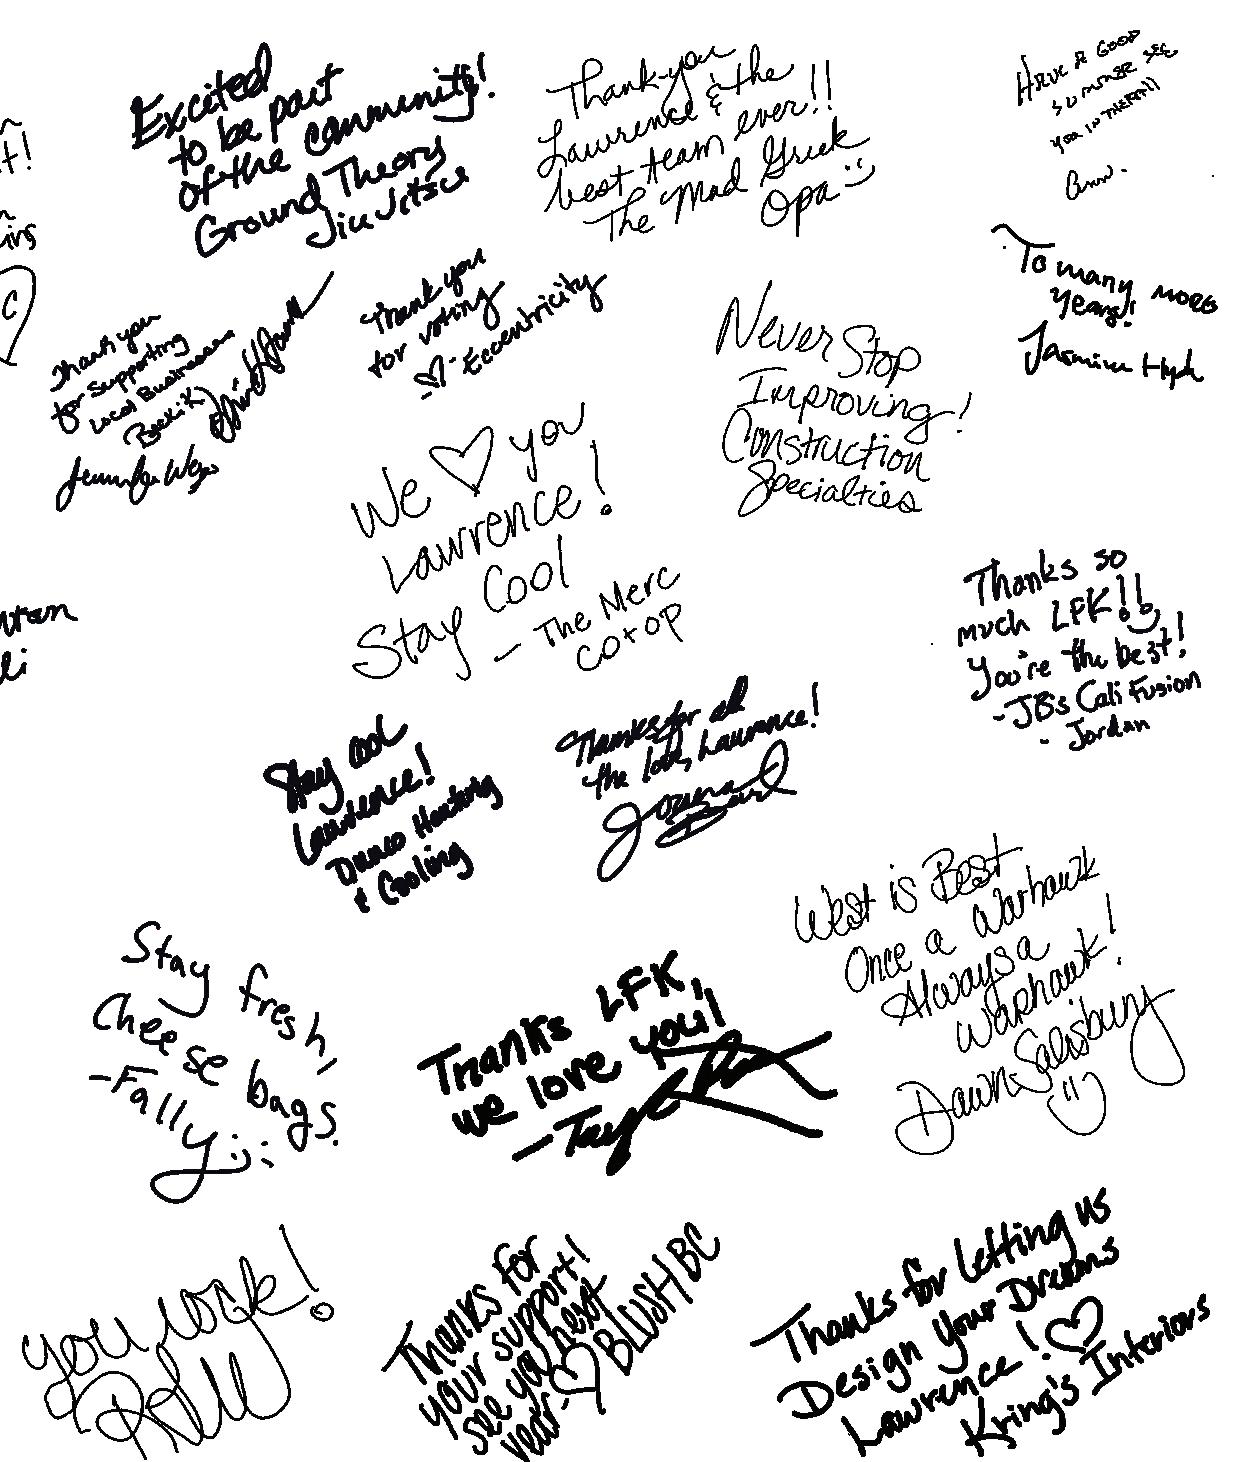 Excited
to be part
of the community!
Ground Theory
Jiu Jitsu
Thank you
Lawrence & the
best team ever!!
The Mad Greek
Opa
HAVE A GOOD
SUMMER SEE
YOU IN THE FALL
t!
To many more
years!
Jasmine
Thank you
for supporting
Local Businesses
Jennifer
Thank you
for voting
- Eccentricity
Never Stop
Improving!
Construction
Specialties
We you
Lawrence!
Stay Cool
- The Merc
CO+OP
Thanks so
much LFK!!
You're the best!
- JB's Cali Fusion
- Jordan
Stay Cool
Lawrence!
Dunco Heating
& Cooling
Thanks for all
the love, Lawrence!
Joanna
West is Best
Once a Warhawk
Always a
Warhawk!
Dawn Salisbury
Stay fresh
Cheese bags.
- Fally
Thanks LFK,
we love you!
you rock!
Thanks for
your support!
see you next
year-
BLUSH BC
Thanks for letting us
Design Your Dreams
Lawrence!
Kring's Interiors